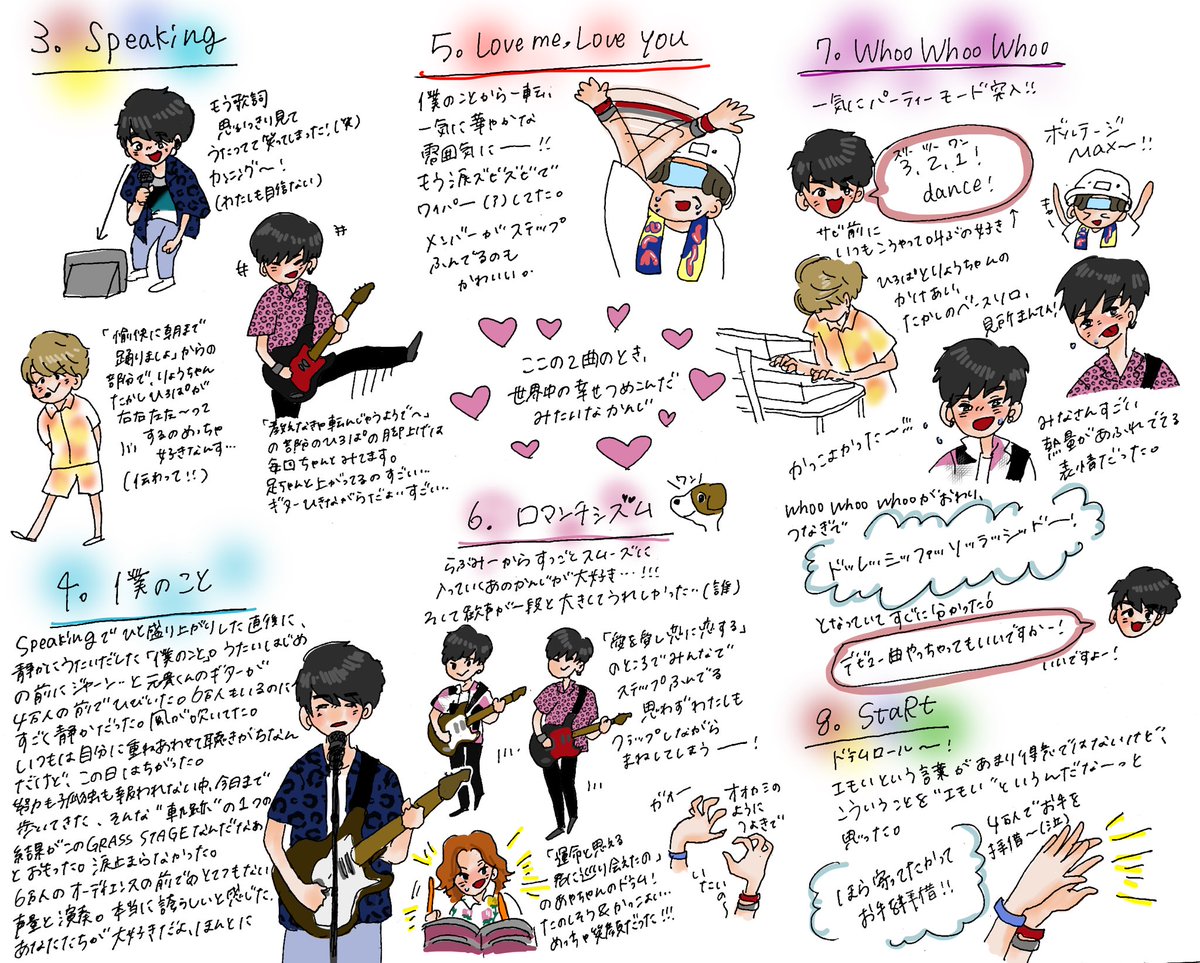 3. Speaking
もう歌詞
思いっきり見て
うたってて笑ってしまった!(笑)
カンニング〜!
(わたしも自信ない)
「愉快に朝まで
踊りましょ」からの
部分で、りょうちゃん
たかしひろぱが
右右たた〜って
するのめっちゃ
好きなんす…
(伝わって!!)
の部分のひろぱの脚上げは
毎回ちゃんとみてます。
足ちゃんと上がってるのすごい…
ギターひきながらだよ…すごい…
4. 僕のこと
Speakingでひと盛り上がりした直後に、
静かにうたいだした「僕のこと」。うたいはじめ
の前にジャーン…と元貴くんのギターが
4万人の前でひびいた。6万人もいるのに
すごく静かだった。風が吹いてた。
いつもは自分に重ねあわせて聴きがちなん
だけど、この日はちがった。
努力も孤独も報われない中、今日まで
歩いてきた、そんな"軌跡"の1つの
結果がこのGRASS STAGEなんだなぁ
とおもった。涙止まらなかった。
6万人のオーディエンスの前でのとてつもない
声量と演奏。本当に誇らしいと感じた。
あなたたちが大好きだよ、ほんとに
5. Love me, Love you
僕のことから一転、
一気に華やかな
雰囲気にーー!!
もう涙ズビズビで
ワイパー(?)してた。
メンバーがステップ
ふんでるのも
かわいい。
ここの2曲のとき、
世界中の幸せつめこんだ
みたいなかんじ
6. ロマンチシズム
ワン!
らぶみーからすっごとスムーズに
入っていくあのかんじが大好き…!!!
そして歓声が一段と大きくてうれしかった…(誰)
「愛を愛し恋に恋する」
のところでみんなで
ステップふんでる
思わずわたしも
クラップしながら
まねしてしまうーー!
「運命と思える
君に巡り会えたの」
のあやちゃんのドラム!
たのしそう&かっこよい…
めっちゃ笑顔だった!!!
ガオー
オオカミの
ように
つよきで
いたい
の〜
7. Whoo Whoo Whoo
一気にパーティーモード突入!!
スリー ツー ワン
3, 2, 1!
dance!
ボルテージ
MAX〜!!
サビ前に
いつもこうやって叫ぶの好き↑
ひろぱとりょうちゃんの
かけあい、
たかしのベースソロ、
見所まんてん!
かっこよかった〜!!!
みなさんすごい
熱量があふれでてる
表情だった。
Whoo Whoo Whooがおわり、
つなぎで
ドッレッミッファッソッラッシッドーー!
となっていてすぐに分かった!
デビュー曲やっちゃってもいいですかー!
いいですよー!
8. StaRt
ドラムロール〜!
エモいという言葉があまり得意ではないけど、
こういうことを"エモい"というんだな〜っと
思った。
ほら寄ってたかって
お手を拝借!!
4万人でお手を
拝借〜(泣)